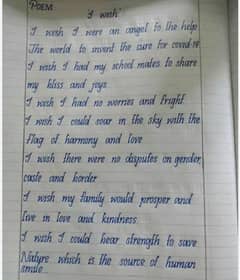 POEM
'I wish'
I wish I were an angel to the help
The world to invent the cure for covid-19
I wish I had my school mates to share
my bliss and joys.
I wish I had no worries and fright.
I wish I could soar in the sky with the
Flag of harmony and love
I wish there were no disputes on gender,
caste and border.
I wish my family would prosper and
live in love and kindness.
I wish I could bear strength to save
Nature which is the source of human
smile...